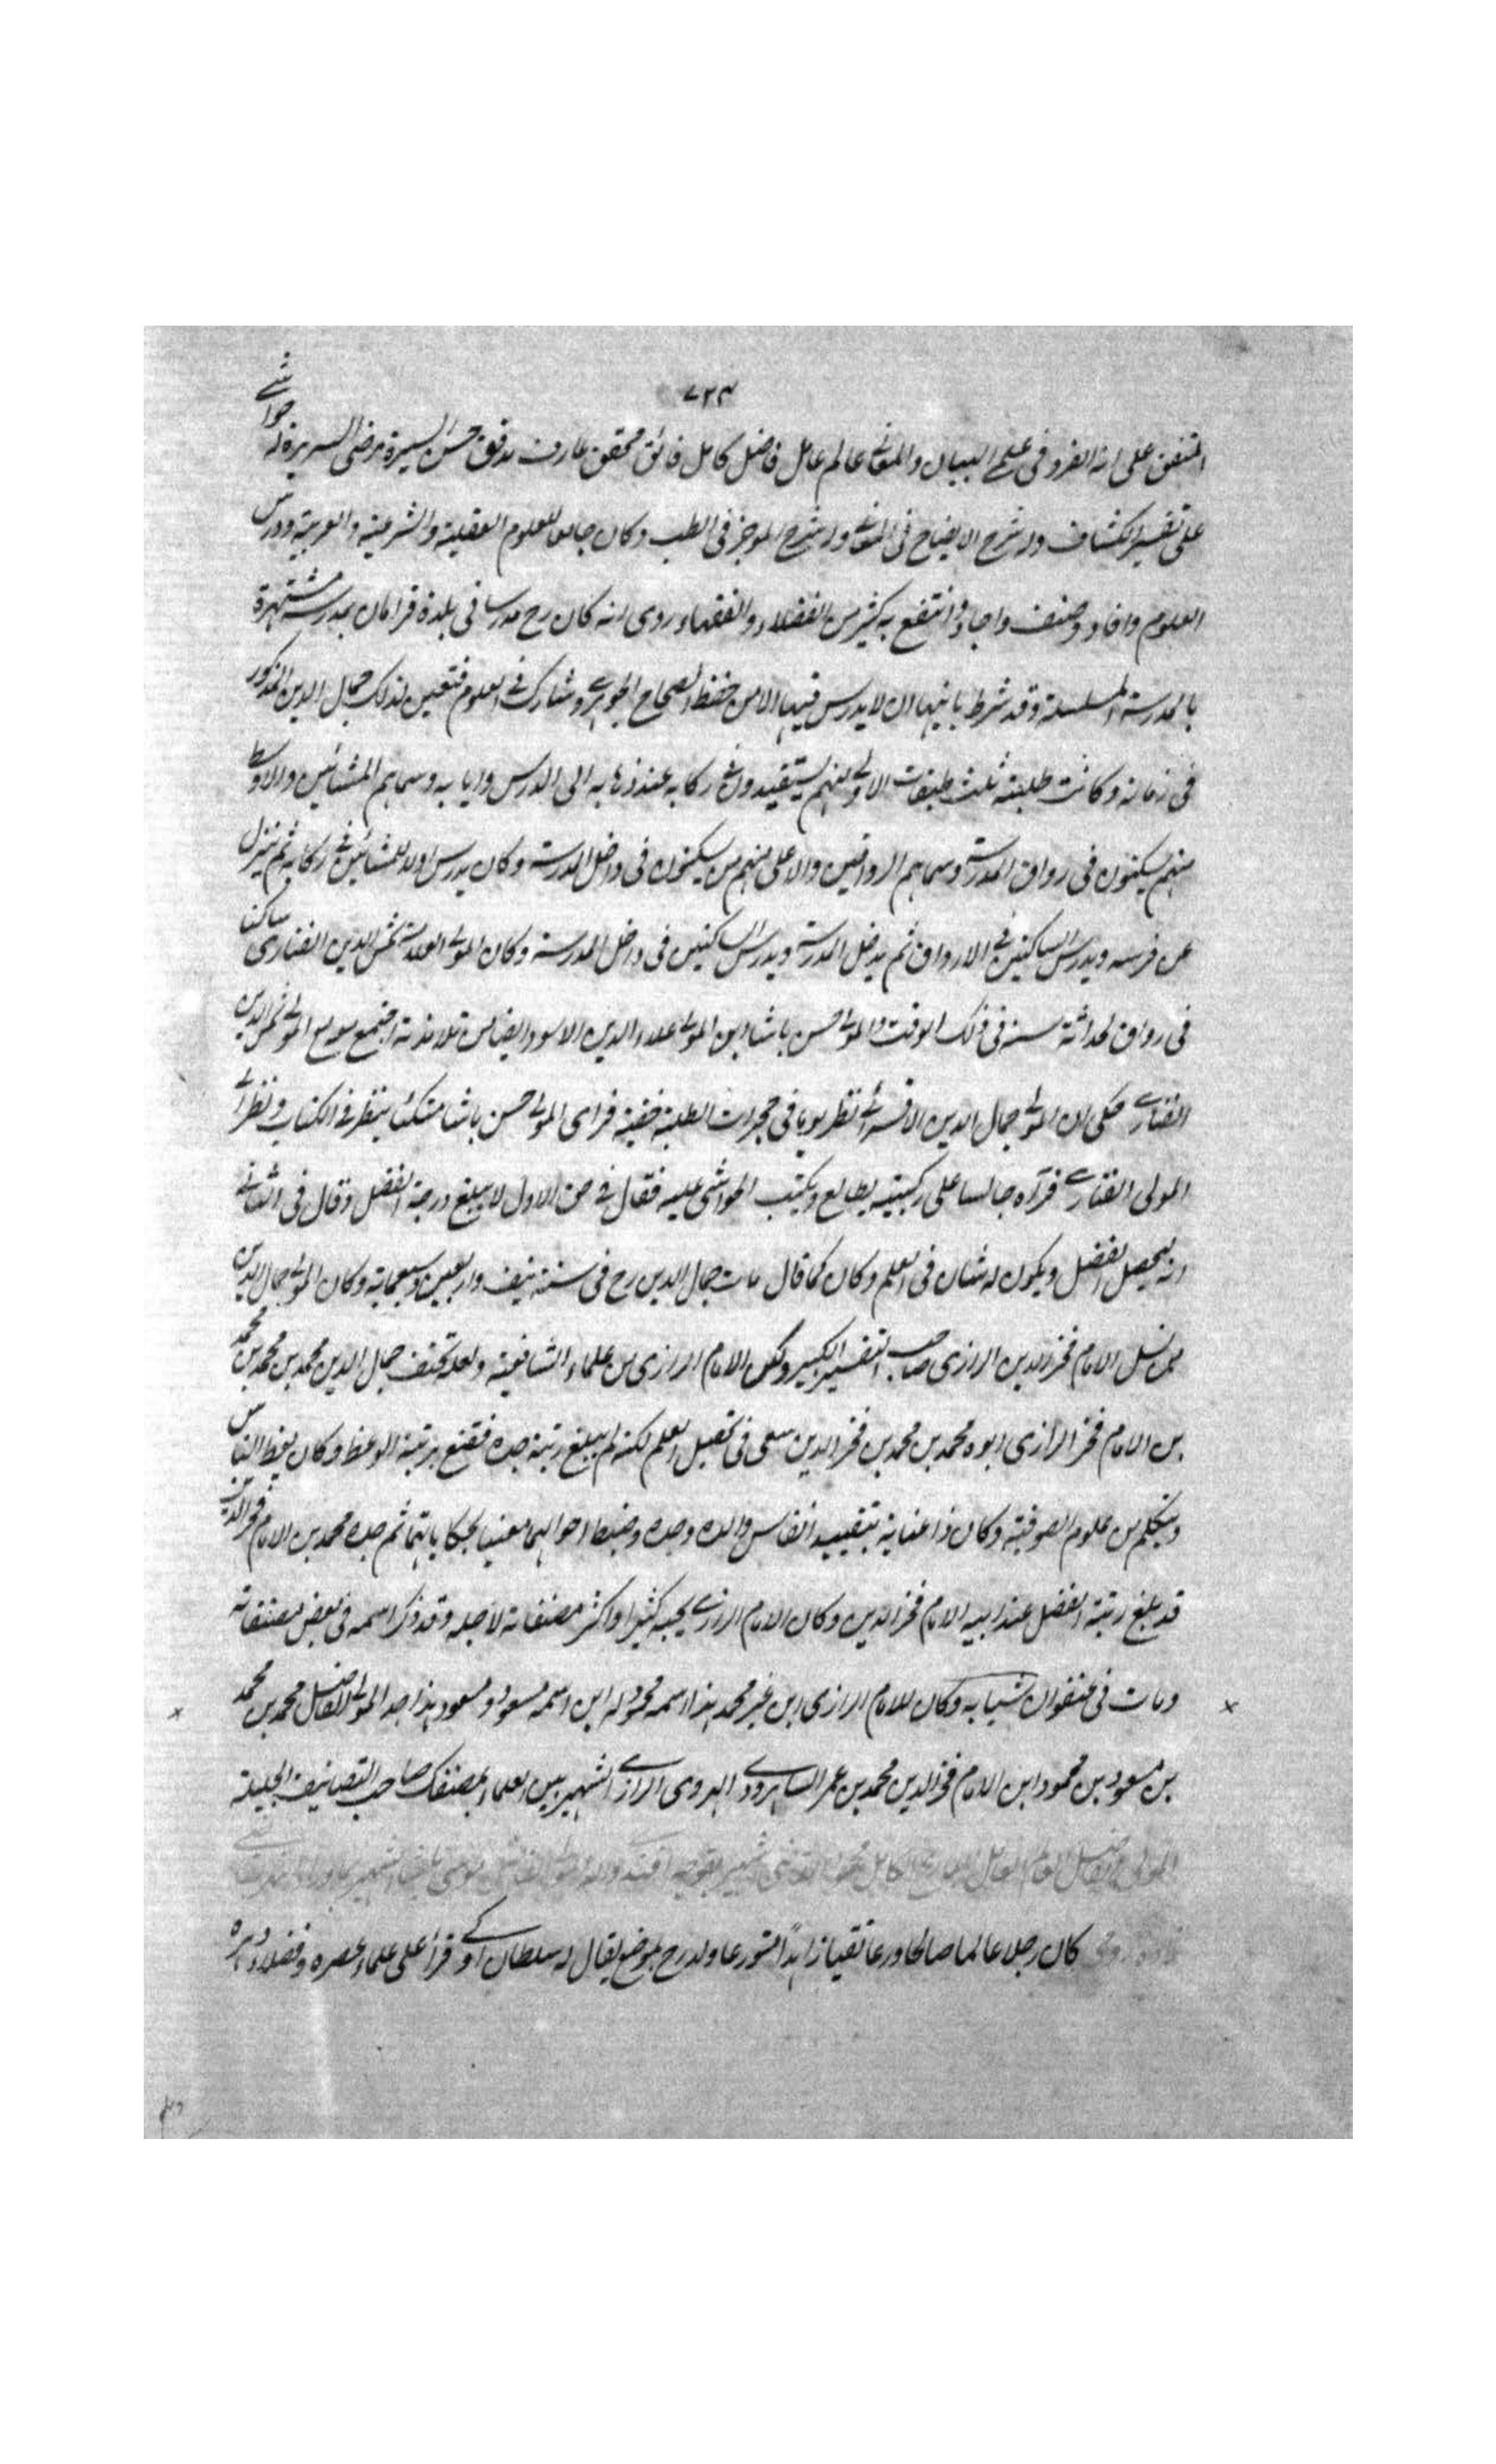 ٧٢٣
المتفق على انه انفرد فى علمى البيان والمعانى عالم عامل فاضل كامل فائق محقق عارف مدقق حسن السيرة مرضى السريرة له حواشى
على تفسير الكشاف وله شرح الايضاح فى المعانى وله شرح الموجز فى الطب وكان جامعا للعلوم العقلية والشرعية والعربية ودرس
العلوم وافاد وصنف واجاد وانتفع به كثير من الفضلاء والفقهاء روى انه كان رح مدرسا فى بلدة قرامان بمدرسة مشتهرة
بالمدرسة المسلسلة وقد شرط بانيها ان لا يدرس فيها الا من حفظ الصحاح الجوهرى وشارك فى العلوم فتعين لذلك جمال الدين المذكور
فى زمانه وكانت طلبته ثلث طبقات الاولى منهم يستفيدون فى ركابه عند ذهابه الى الدرس وايابه وسماهم المشائين والاوسط
منهم يسكنون فى رواق المدرسة وسماهم الرواقين والاعلى منهم من يسكنون فى داخل المدرسة وكان يدرس اولا للمشائين فى ركابه ثم ينزل
عن فرسه ويدرس الساكنين فى الارواق ثم يدخل المدرسة ويدرس الساكنين فى داخل المدرسة وكان المولى العلامة شمس الدين الفنارى ساكنا
فى رواق لحداثة سنه فى ذلك الوقت والمولى حسن باشا ابن المولى علاء الدين الاسود ايضا من تلامذته اجتمع مع المولى شمس الدين
الفنارى حكى ان المولى جمال الدين الاقسرائى نظر يوما فى حجرات الطلبة خفية فراى المولى حسن باشا متكئا ينظر فى الكتاب ونظر الى
المولى الفنارى فرآه جالسا على ركبتيه يطالع ويكتب الحواشى عليه فقال فى حق الاول لا يبلغ درجة الفضل وقال فى الثانى
انه ليحصل الفضل ويكون له شان فى العلم وكان كما قال مات جمال الدين رح فى سنة نيف واربعين وسبعمائة وكان المولى جمال الدين
من نسل الامام فخر الدين الرازى صاحب التفسير الكبير وكان الامام الرازى من علماء الشافعية ولعله تحنف جمال الدين محمد بن محمد بن محمد
بن الامام فخر الرازى ابوه محمد بن محمد بن فخر الدين سعى فى تحصيل العلم لكنه لم يبلغ رتبة جده فقنع برتبة الوعظ وكان يعظ الناس
ويتكلم من علوم الصوفية وكان ذا عناية بتقييد انفاس والده وجده وضبط احوالهما معنيا بحكاياتهما ثم جده محمد بن الامام فخر الدين
قد بلغ رتبة الفضل عند ابيه الامام فخر الدين وكان الامام الرازى يحبه كثيرا واكثر مصنفاته لاجله وقد ذكر اسمه فى بعض مصنفاته
ومات فى عنفوان شبابه وكان للامام الرازى ابن غير محمد هذا اسمه محمود له ابن اسمه مسعود ومسعود هذا جد المولى الفاضل محمد بن محمد
بن مسعود بن محمود ابن الامام فخر الدين محمد بن عمر الشاهرودى الهروى الرازى الشهير بين العلماء بمصنفك صاحب التصانيف الجليلة
المولى الفاضل العالم العامل البارع الكامل
كان رجلا عالما صالحا ورعا تقيا زاهدا متورعا ولد رح بموضع يقال له سلطان اوكى قرأ على علماء عصره وفضلاء دهره